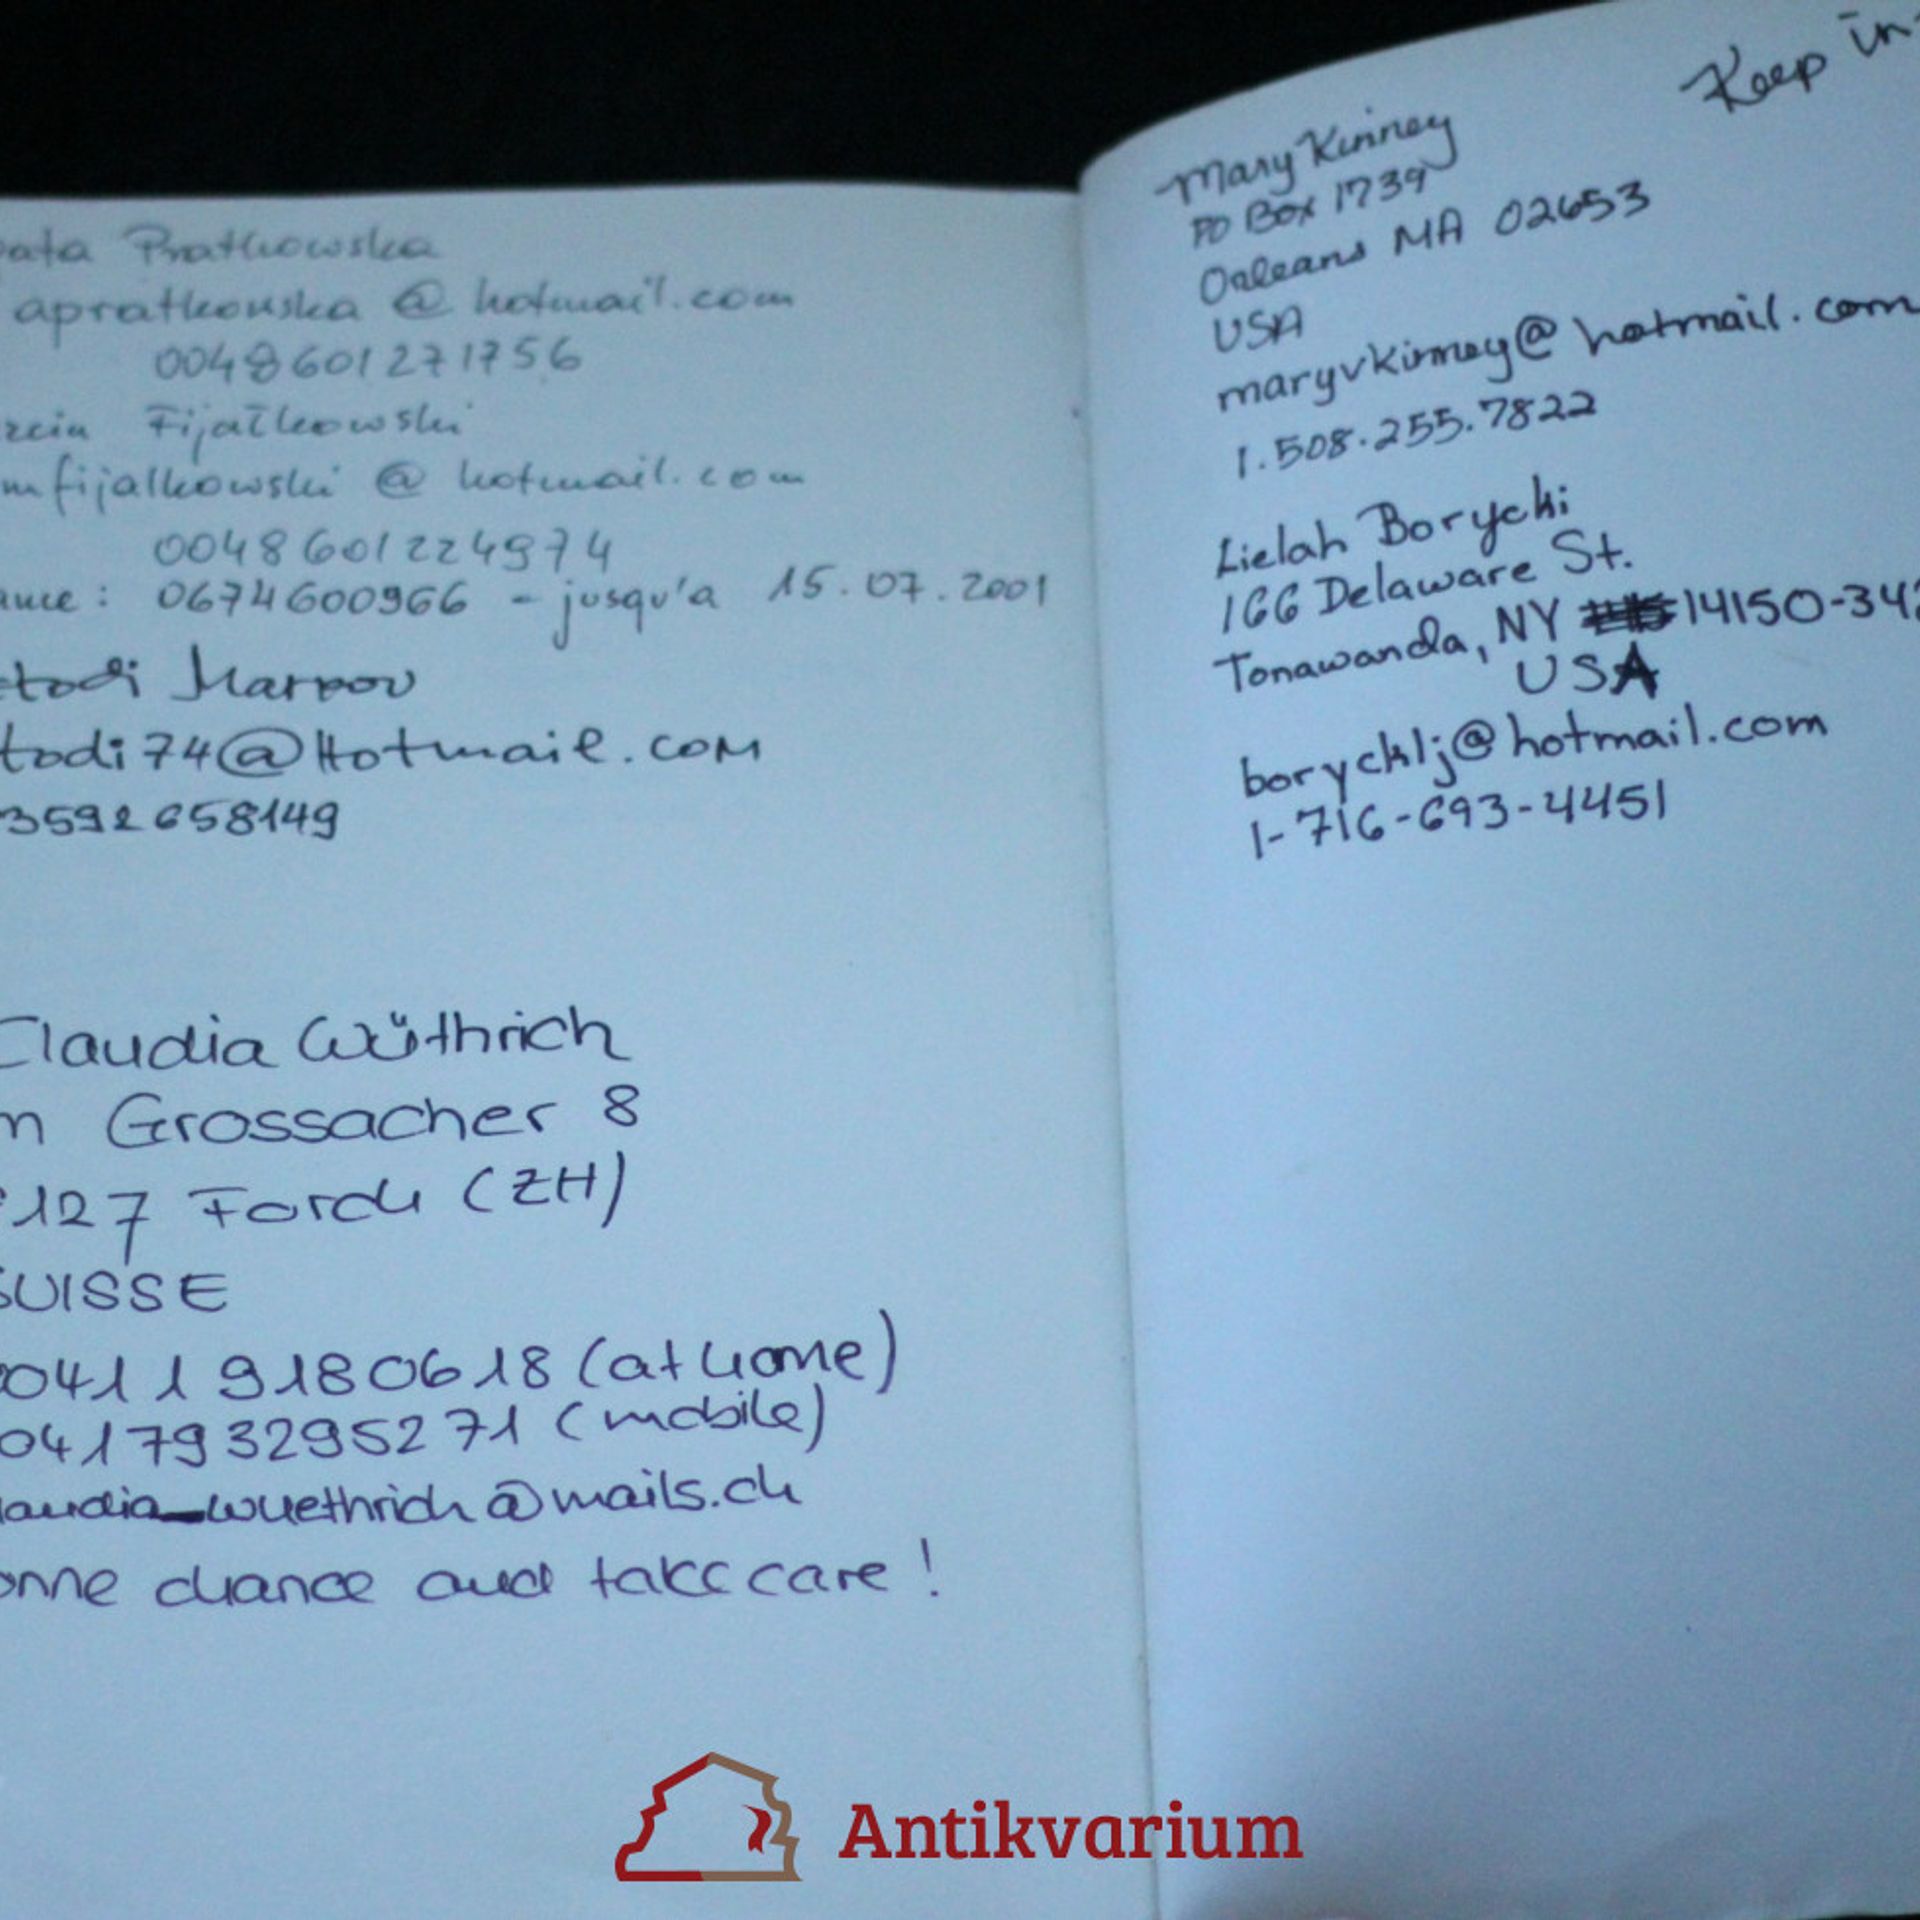 Pratkowska
apratkowska @ hotmail.com
0048601271756
Fijałkowski
mfijalkowski @ hotmail.com
0048601224974
0674600966 - jusqu'a 15.07.2001
todi74@Hotmail.com
3592658149
Claudia Wüthrich
Grossacher 8
127 Forch (ZH)
SUISSE
00411 9180618 (at home)
0041793295271 (mobile)
claudia_wuethrich@mails.ch
onne chance and take care!
Keep in
Mary Kinney
PO Box 1739
Orleans MA 02653
USA
maryvkinney@hotmail.com
1.508.255.7822
Lielah Borycki
166 Delaware St.
Tonawanda, NY 14150-342
USA
borycklj@hotmail.com
1-716-693-4451
Antikvarium